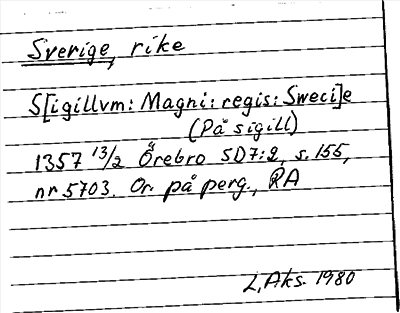 Sverige, rike
S[igillvm: Magni: regis: Sweci]e
(På sigill)
1357 13/2 Örebro SD7:2, s. 155,
nr 5703. Or. på perg., RA
L, Aks. 1980